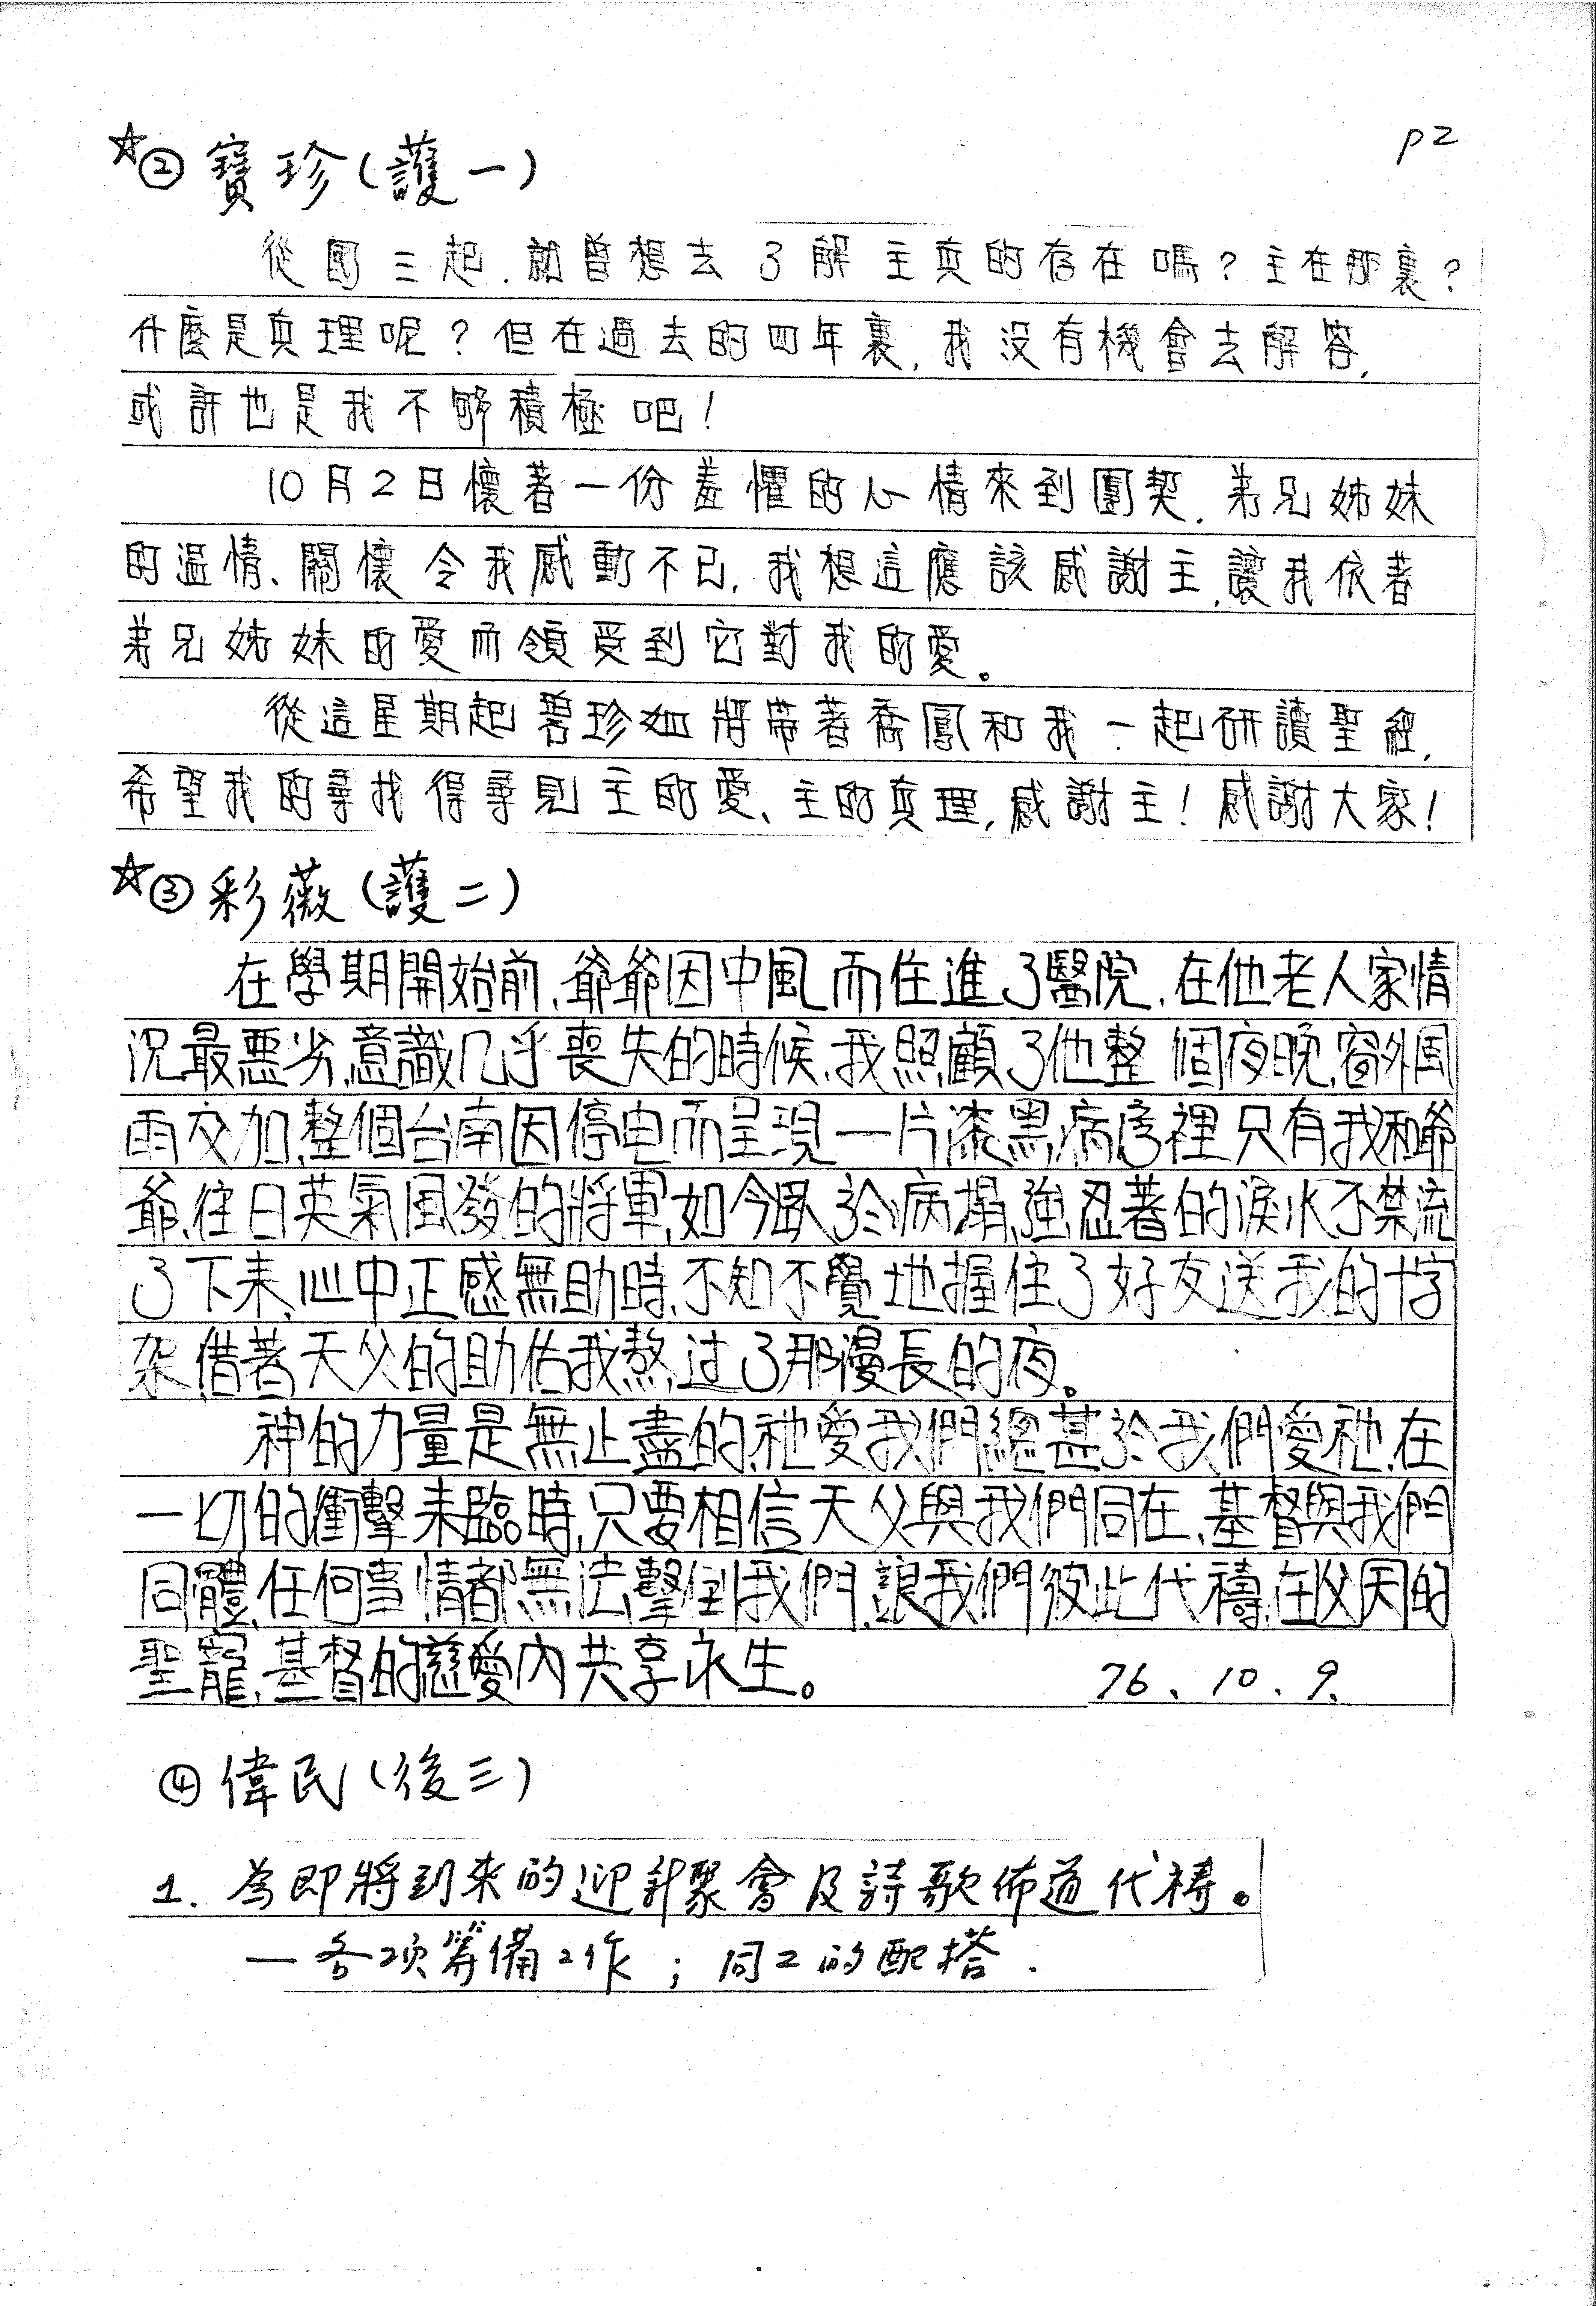 p2
☆② 寶珍（護一）
從國三起，就曾想去了解主真的存在嗎？主在那裏？
什麼是真理呢？但在過去的四年裏，我沒有機會去解答，
或許也是我不夠積極吧！
10月2日懷著一份羞懼的心情來到團契，弟兄姊妹
的溫情、關懷令我感動不已，我想這應該感謝主，讓我依著
弟兄姊妹的愛而領受到它對我的愛。
從這星期起碧珍如將帶著喬鳳和我一起研讀聖經，
希望我的尋找得尋見主的愛、主的真理，感謝主！感謝大家！
☆③ 彩薇（護二）
在學期開始前，爺爺因中風而住進了醫院，在他老人家情
況最惡劣，意識几乎喪失的時候，我照顧了他整個夜晚，窗外風
雨交加，整個台南因停电而呈現一片漆黑，病房裡只有我和爺
爺，往日英氣風發的將軍，如今臥於病榻，強忍著的淚水不禁流
了下来，心中正感無助時，不知不覺地握住了好友送我的十字
架，借著天父的助佑我熬过了那漫長的夜。
神的力量是無止盡的，祂愛我們總甚於我們愛祂，在
一切的衝擊来臨時，只要相信天父與我們同在，基督與我們
同體，任何事情都無法擊倒我們，讓我們彼此代禱，在父天的
聖寵，基督的慈愛內共享永生。
76、10、9、
④ 偉民（後三）
1. 為即將到來的迎新聚會及詩歌佈道代禱。
— 各項籌備工作；同工的配搭．